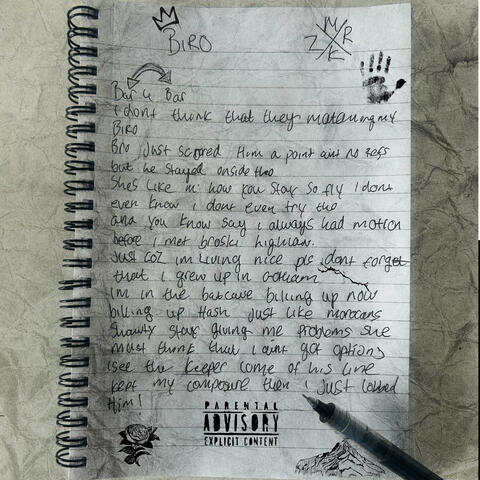 BIRO
Z M R K
Bar 4 Bar
I dont think that they matching my
BIRO
Bro just scored Him a point aint no refs
but he stayed onside tho
Shes like hi how you stay so fly I dont
even know i dont even try tho
and you know say i always had motion
before i met broski highman.
Just coz im living nice pls dont forget
that i grew up in Gotham
Im in the batcave billing up now
billing up Hash just like morocans
Shawty stays giving me problems she
must think that i aint got options
I see the keeper come of his line
kept my composure then i just lobbed
Him!
PARENTAL
ADVISORY
EXPLICIT CONTENT